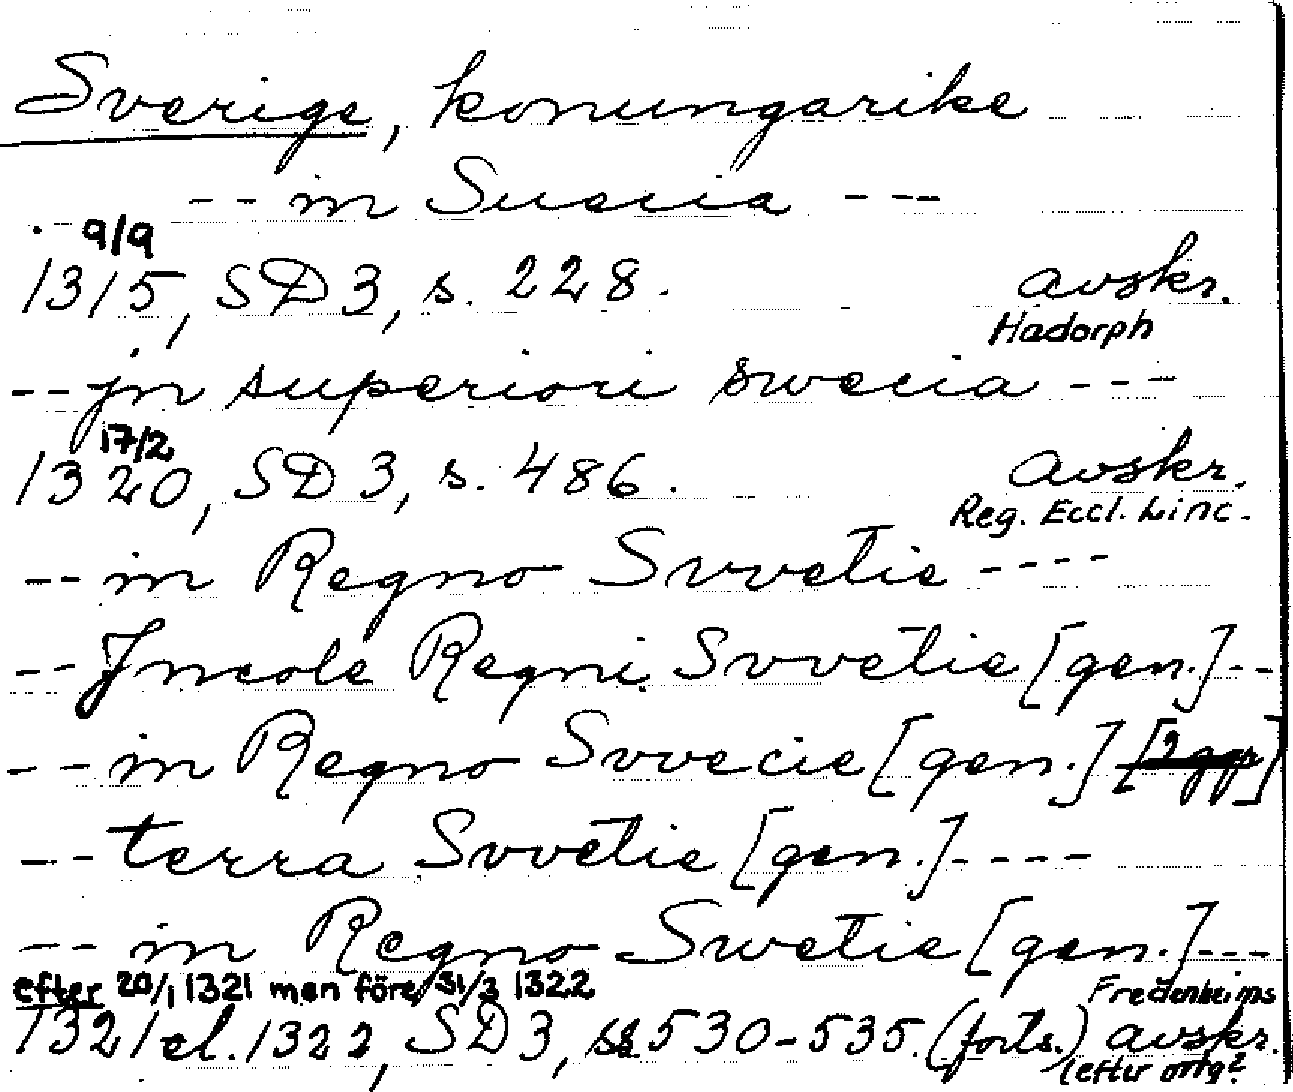 Sverige, konungarike
-- in Suecia ---
9/9
1315, SD 3, s. 228. avskr.
Hadorph
-- jn superiori swecia ---
17/2
1320, SD 3, s. 486. avskr.
Reg. Eccl. Linc.
-- in Regno Svvetie ----
-- Jncole Regni Svvetie [gen.] --
-- in Regno Svvecie [gen.] [2 ggr]
-- terra Svvetie [gen.] ----
-- in Regno Swetie [gen.] ---
efter 20/1 1321 men före 31/3 1322 Fredenheims
1321 el. 1322, SD 3, s. 530-535. (forts.) avskr.
(efter